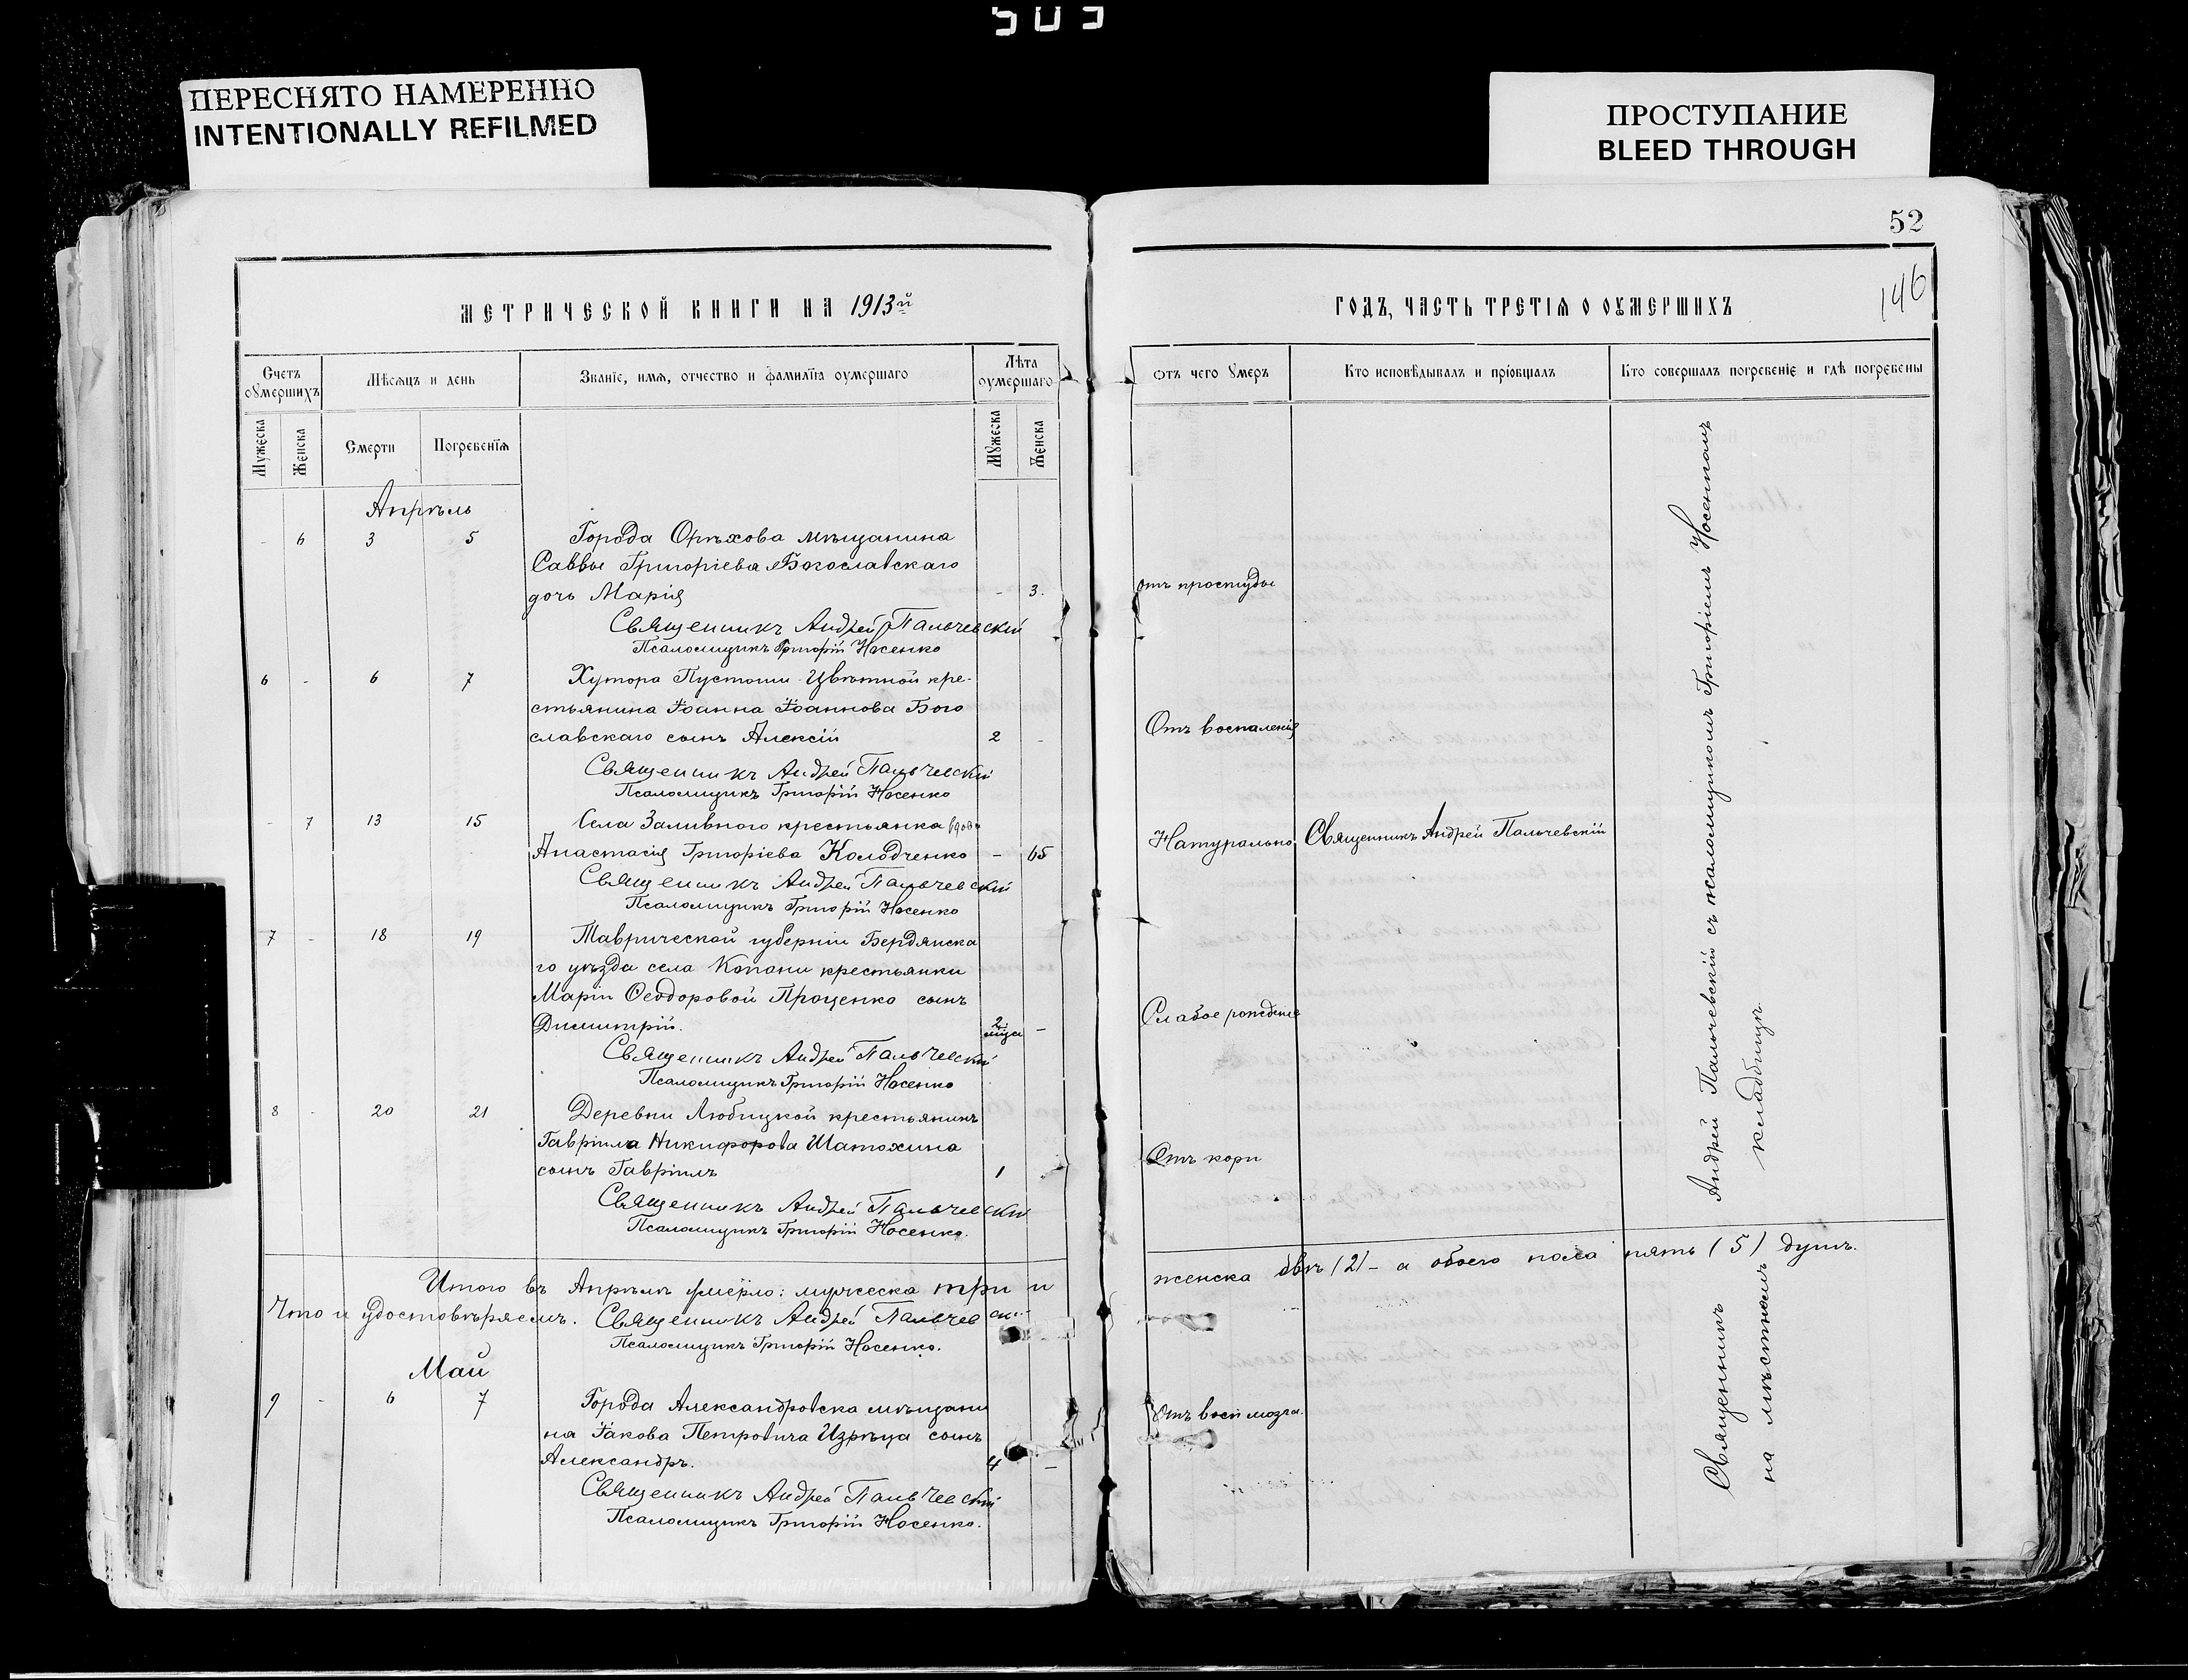 503
ПЕРЕСНЯТО НАМЕРЕННО
INTENTIONALLY REFILMED
ПРОСТУПАНИЕ
BLEED THROUGH
52
146
МЕТРИЧЕСКОЙ КНИГИ НА 1913й
Счетъ оумершихъ
Мѣсяцъ и день
Званїе, имя, отчество и фамилїя оумершаго
Лѣта оумершаго
Мужеска
Женска
Смерти
Погребенїя
Мужеска
Женска
Апрѣль
- 6 3 5 Города Орѣхова мѣщанина
Саввы Григоріева Богославскаго
дочь Марія - 3.
Священникъ Андрей Пальчевскій
Псаломщикъ Григорій Носенко
6 - 6 7 Хутора Пустоши-Цвѣтной кре-
стьянина Іоанна Іоаннова Бого
славскаго сынъ Алексій 2 -
Священникъ Андрей Пальчевскій
Псаломщикъ Григорій Носенко
- 7 13 15 Села Заливного крестьянка вдова
Анастасія Григоріева Колодченко - 65
Священникъ Андрей Пальчевскій
Псаломщикъ Григорій Носенко
7 - 18 19 Таврической губерніи Бердянска
го уѣзда села Копани крестьянки
Маріи Ѳеодоровой Проценко сынъ
Димитрій. 2 мца -
Священникъ Андрей Пальчевскій
Псаломщикъ Григорій Носенко
8 - 20 21 Деревни Любицкой крестьянинъ
Гавріила Никифорова Шатохина
сынъ Гавріилъ 1 -
Священникъ Андрей Пальчевскій
Псаломщикъ Григорій Носенко.
Итого въ Апрѣлѣ умерло: мужеска три и
Что и удостовѣряемъ. Священникъ Андрей Пальчевскій
Псаломщикъ Григорій Носенко.
Май
9 - 6 7 Города Александровска мѣщани
на Іакова Петровича Изрѣца сынъ
Александръ. 4 -
Священникъ Андрей Пальчевскій
Псаломщикъ Григорій Носенко.
ГОДЪ, ЧАСТЬ ТРЕТІЯ О ОУМЕРШИХЪ
Отъ чего умеръ
Кто исповѣдывалъ и прїобщалъ
Кто совершалъ погребенїе и гдѣ погребены
отъ простуды
Отъ воспаленія
Натурально
Священникъ Андрей Пальчевскій
Слабое рожденіе
Отъ кори
женска двѣ (2) - а обоего пола пять (5) душъ.
Отъ восп мозга.
Священникъ Андрей Пальчевскій съ псаломщикомъ Григоріемъ Носенкомъ
на мѣстномъ кладбищѣ.